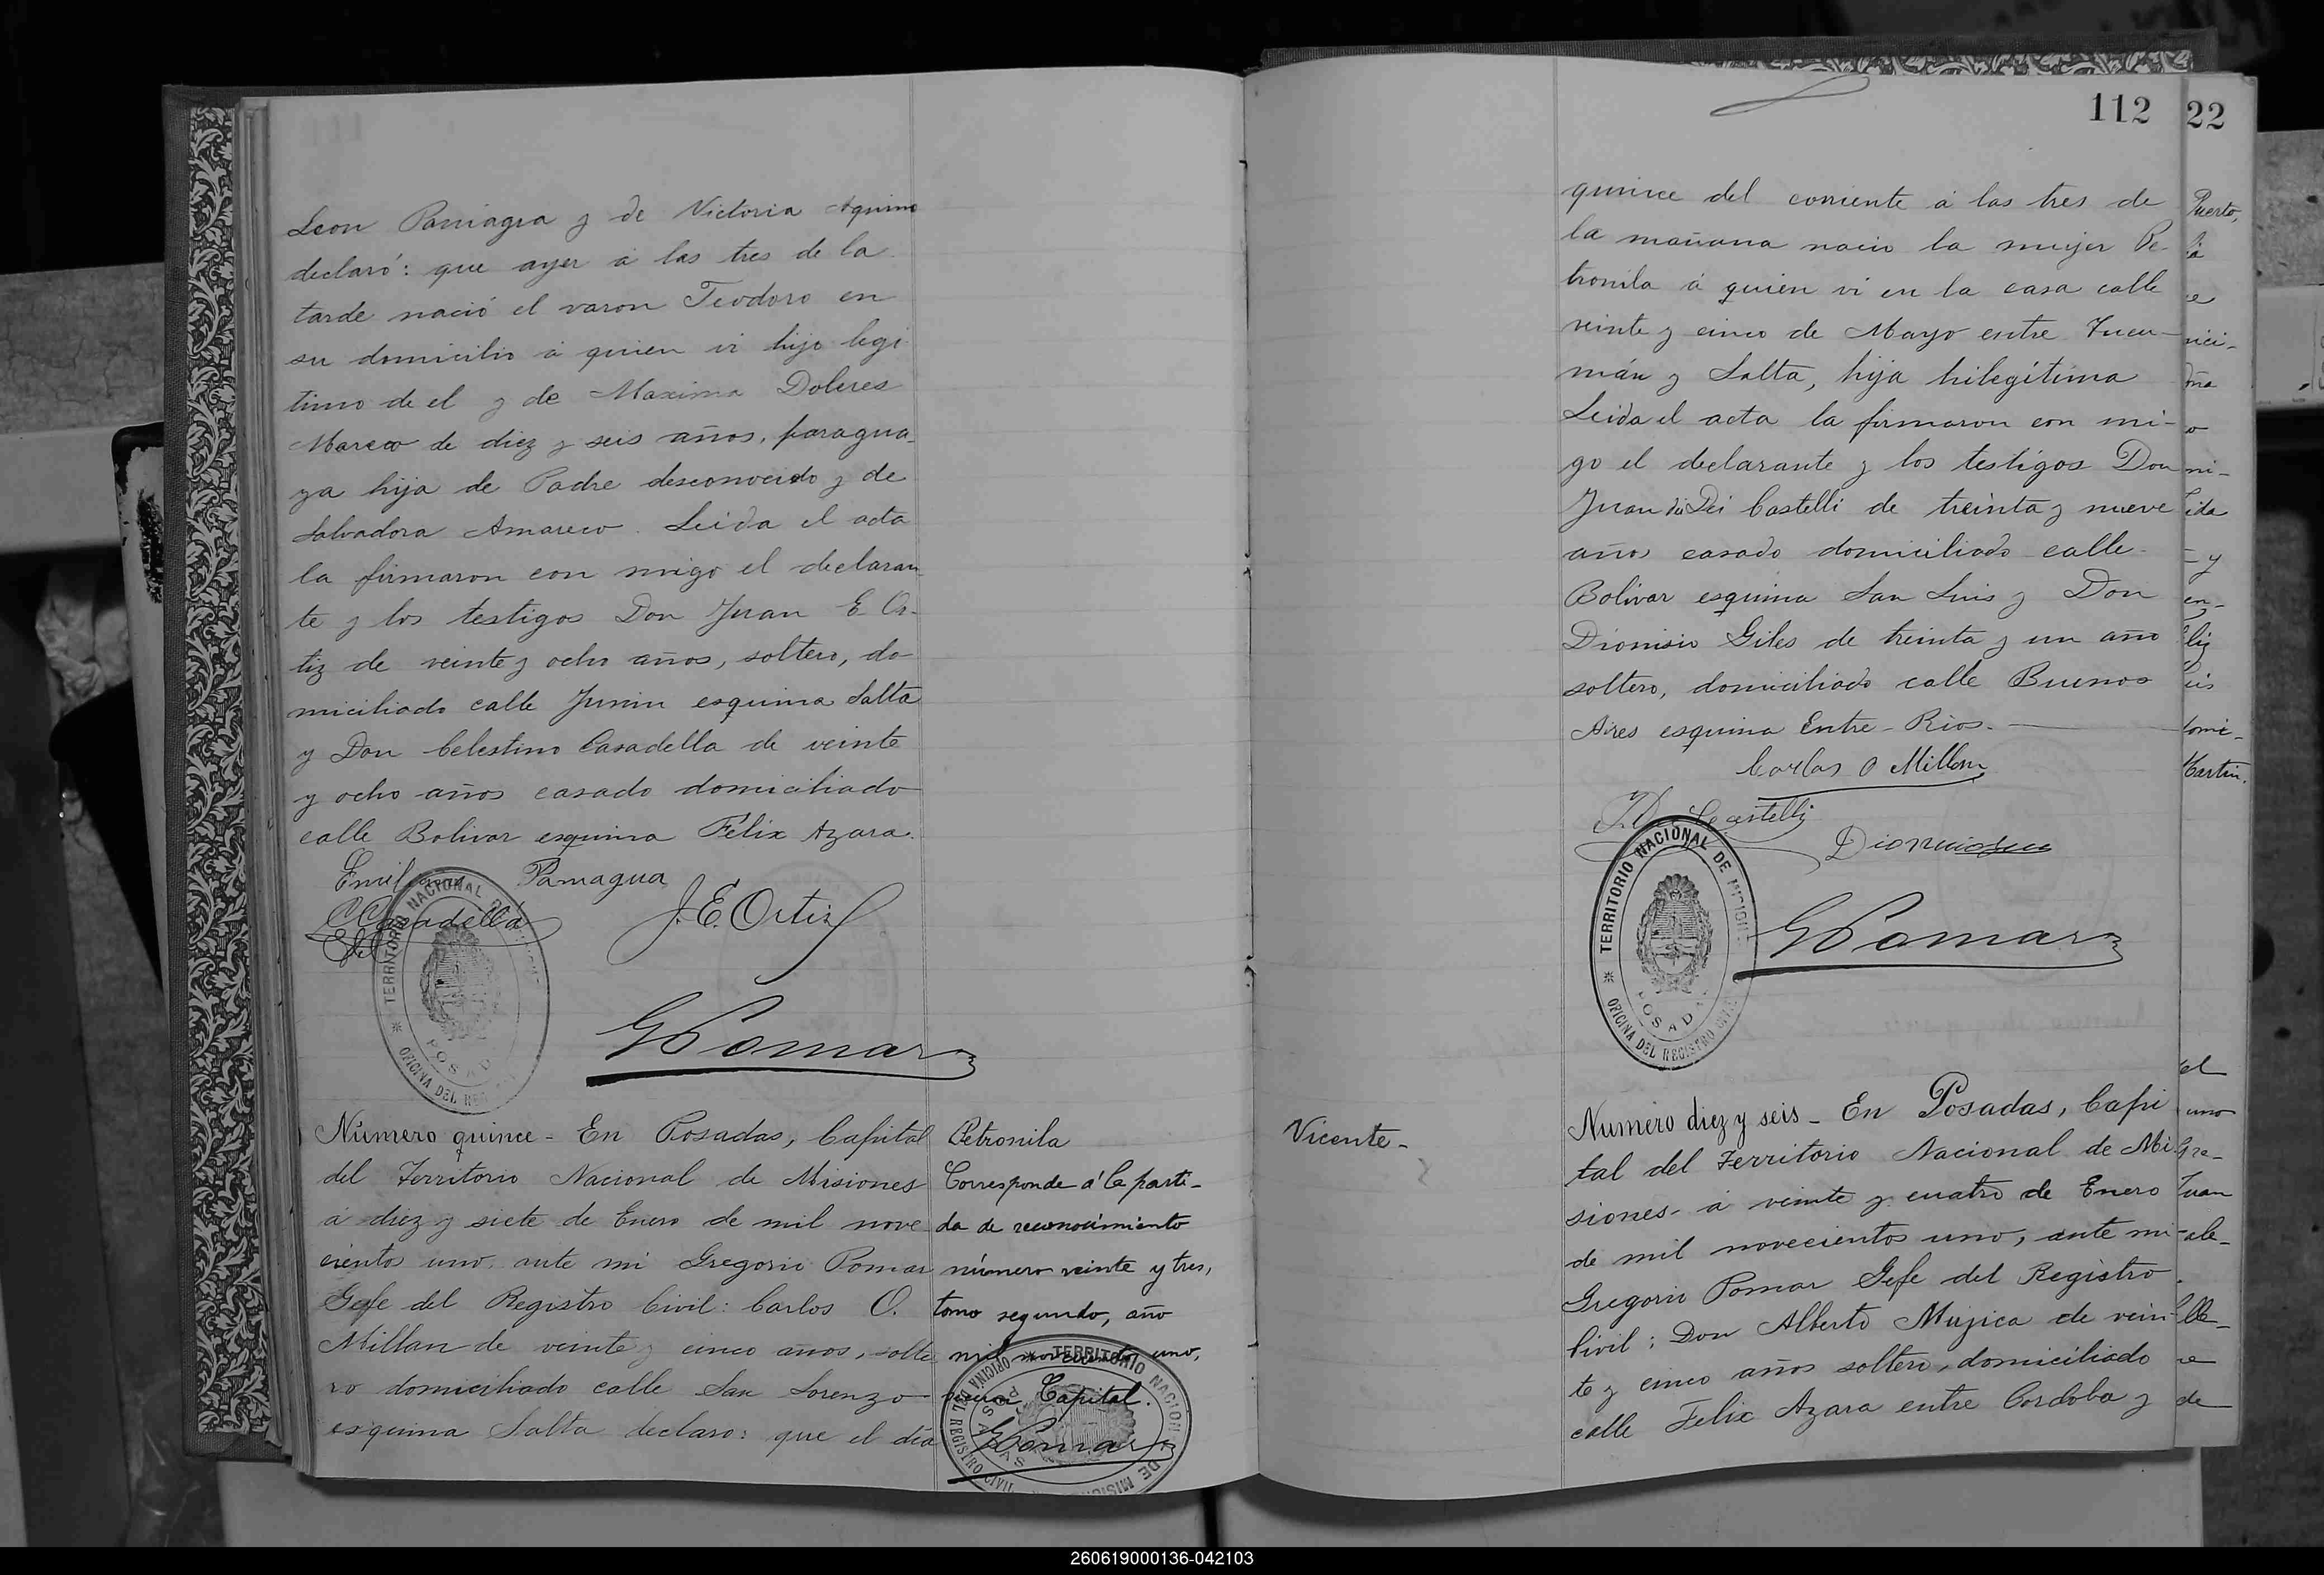 Leon Paniagra y de Victoria Aquino
declaró: que ayer á las tres de la
tarde nació el varon Teodoro en
su domicilio á quien vi hijo legi
timo de el y de Maxima Dolores
Mareco de diez y seis años, paragua-
ya hija de Padre desconocido y de
Salvadora Amareco. Leida el acta
la firmaron con migo el declaran
te y los testigos Don Juan E Or-
tiz de veinte y ocho años, soltero, do
miciliado calle Junin esquina Salta
y Don Celestino Casadella de veinte
y ocho años casado domiciliado
calle Bolivar esquina Félix Azara.
Paniagua
C Casadella
J. E. Ortiz
TERRITORIO NACIONAL
POSADAS
OFICINA DEL REG
G Pomar
Número quince - En Posadas, Capital
del Territorio Nacional de Misiones
á diez y siete de Enero de mil nove
cientos uno, ante mi Gregorio Pomar
Gefe del Registro Civil: Carlos O.
Millan de veinte y cinco años, solte
ro domiciliado calle San Lorenzo
esquina Salta declaro: que el dia
Petronila
Corresponde á la parti-
da de reconocimiento
número veinte y tres,
tomo segundo, año
mil novecientos uno,
Capital.
G Pomar
TERRITORIO NACIONAL DE MISIONES
OFICINA DEL REGISTRO CIVIL
POSADAS
112
quince del corriente á las tres de
la mañana nació la mujer Pe-
tronila á quien vi en la casa calle
veinte y cinco de Mayo entre Tucu-
mán y Salta, hija hilegítima
Leida el acta la firmaron con mi-
go el declarante y los testigos Don
Juan Dei Castelli de treinta y nueve
años casado domiciliado calle
Bolivar esquina San Luis y Don
Dionisio Giles de treinta y un año
soltero, domiciliado calle Buenos
Aires esquina Entre-Rios.
Carlos O Millan
Castelli
TERRITORIO NACIONAL DE MISIONE
POSADAS
OFICINA DEL REGISTRO CIVIL
G Pomar
Vicente-
Numero diez y seis - En Posadas, Capi
tal del Territorio Nacional de Mi
siones- á veinte y cuatro de Enero
de mil novecientos uno, ante mi
Gregorio Pomar Gefe del Registro
Civil; Don Alberto Mujica de vein
te y cinco años soltero, domiciliado
calle Felix Azara entre Cordoba y
22
Puerto,
260619000136-042103